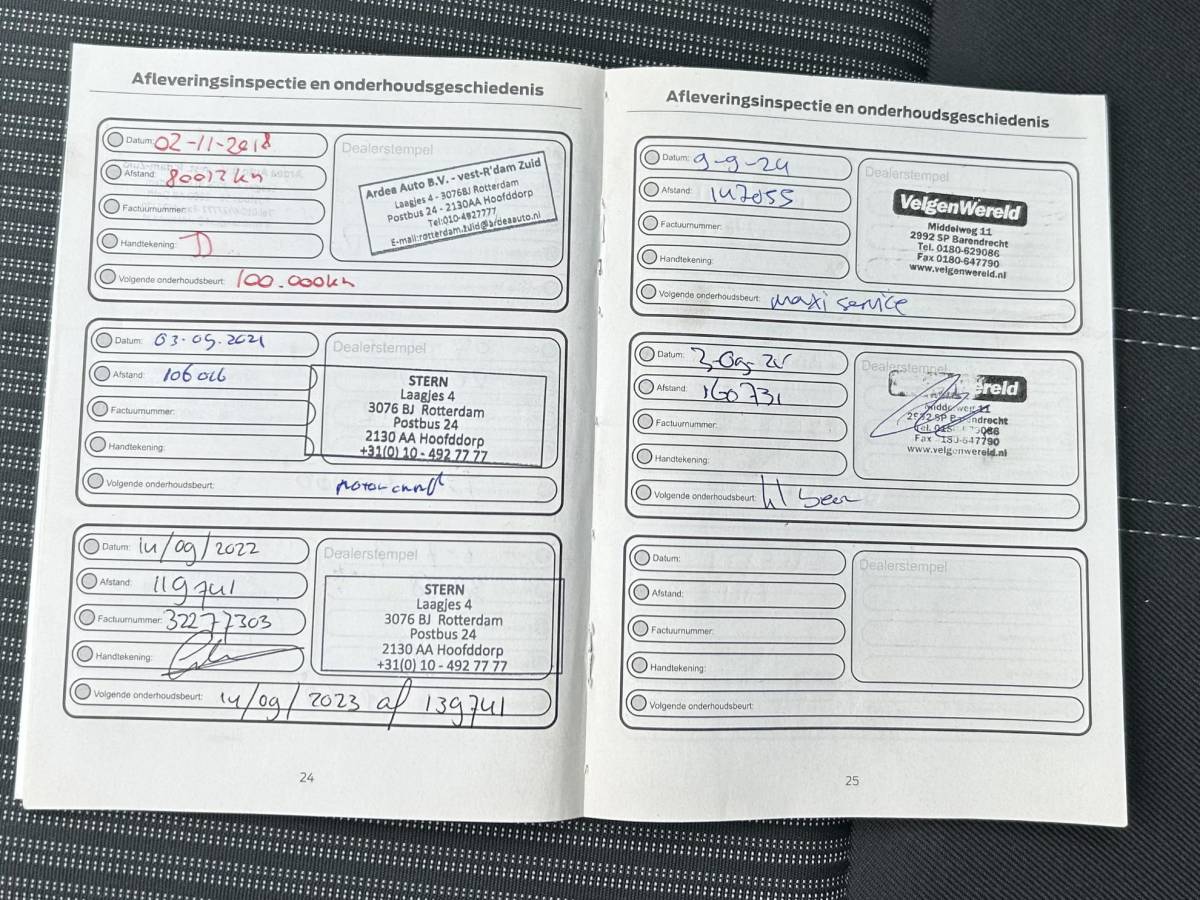 Afleveringsinspectie en onderhoudsgeschiedenis
Datum: 02-11-2018
Afstand: 80012 km
Factuurnummer:
Handtekening:
Volgende onderhoudsbeurt: 100.000km
Dealerstempel
Ardea Auto B.V. - vest-R'dam Zuid
Laagjes 4 - 3076BJ Rotterdam
Postbus 24 - 2130AA Hoofddorp
Tel:010-4927777
E-mail:rotterdam.zuid@ardeaauto.nl
Datum: 03.05.2021
Afstand: 106 016
Factuurnummer:
Handtekening:
Volgende onderhoudsbeurt:
Dealerstempel
STERN
Laagjes 4
3076 BJ Rotterdam
Postbus 24
2130 AA Hoofddorp
+31(0) 10 - 492 77 77
Datum: 14/09/2022
Afstand: 119741
Factuurnummer: 32277303
Handtekening:
Volgende onderhoudsbeurt: 14/09/2023 of 139741
Dealerstempel
STERN
Laagjes 4
3076 BJ Rotterdam
Postbus 24
2130 AA Hoofddorp
+31(0) 10 - 492 77 77
24
Afleveringsinspectie en onderhoudsgeschiedenis
Datum: 9-9-24
Afstand: 147055
Factuurnummer:
Handtekening:
Volgende onderhoudsbeurt: maxi service
Dealerstempel
VelgenWereld
Middelweg 11
2992 SP Barendrecht
Tel. 0180-629086
Fax 0180-647790
www.velgenwereld.nl
Datum:
Afstand: 160731
Factuurnummer:
Handtekening:
Volgende onderhoudsbeurt:
Dealerstempel
ereld
Middelweg 11
2992 SP Barendrecht
Fax 180-647790
www.velgenwereld.nl
Datum:
Afstand:
Factuurnummer:
Handtekening:
Volgende onderhoudsbeurt:
Dealerstempel
25